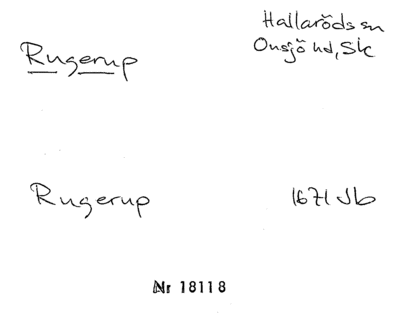 Hallaröds sn
Onsjö hd, Sk
Rugerup
Rugerup
1671 Jb
Nr 18118